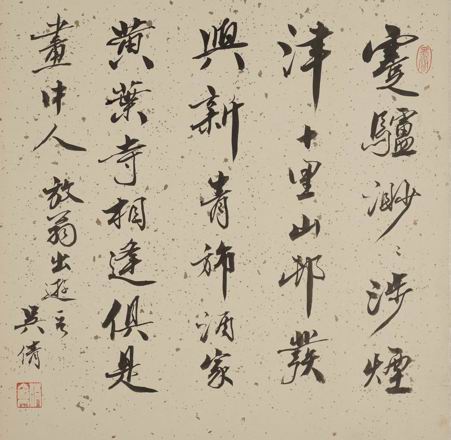 蹇驢渺々涉煙
津十里山邨發
興新青旆酒家
黃葉寺相逢俱是
畫中人 放翁出遊
吳倩